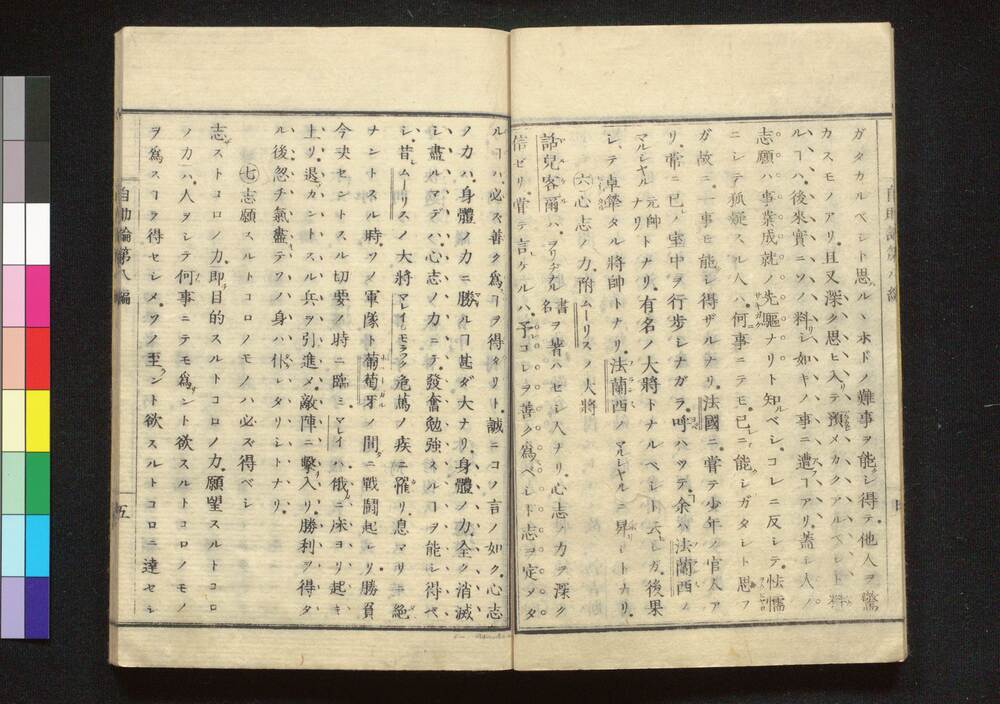 ガタカルベシト思ルヽホドノ難事ヲ能シ得テ他人ヲ驚
カスモノアリ且又深ク思ヒ入リテ預メカクアルベシト料
ルヿハ後來實ニソノ料リシ如キノ事ニ遭フヿアリ蓋シ人ノ
志願ハ事業成就ノ先驅ナリト知ルベシコレニ反シテ怯懦
ニシテ狐疑スル人ハ何事ニテモ已ニ能シガタシト思フ
ガ故ニ一事モ能シ得ザルナリ法國ニ嘗テ少年ノ官人ア
リ常ニ已レノ室中ヲ行歩シナガラ呼ハツテ余ハ法蘭西ノ
マルシヤル元帥トナリ有名ノ大將トナルベシト云シガ後果
シテ卓犖タル將帥トナリ法蘭西ノマルシヤルニ昇リシトナリ
㊅心志ノ力附ムーリスノ大將
話兒客爾ハヲリジナル書名ヲ著ハセシ人ナリ心志ノ力ヲ深ク
信ゼリ嘗テ言ケルハ予コレヲ善ク爲ベシト志ヲ定メタ
ルヿハ必ズ善ク爲ヿヲ得タリト誠ニコノ言ノ如ク心志
ノ力ハ身體ノ力ニ勝ルヿ甚ダ大ナリ身體ノ力全ク消滅
シ盡ルマデハ心志ノ力ニテ發奮勉強スルヿヲ能シ得ベ
シ昔ムーリスノ大將マレイモラック危篤ノ疾ニ罹リ息マサニ絶
ナントスル時ソノ軍隊ト葡萄牙ノ間ニ戰鬪起レリ勝負
今決セントスル切要ノ時ニ臨ミマレイハ俄ニ床ヨリ起キ
上リ退カントスル兵ヲ引進メ敵陣ニ擊入リ勝利ヲ得タ
ル後忽チ氣盡テソノ身ハ仆レタリシトナリ
㊆志願スルトコロノモノハ必ズ得ベシ
志ストコロノ力即チ目的スルトコロノ力願望スルトコロ
ノ力ハ人ヲシテ何事ニテモ爲サント欲スルトコロノモノ
ヲ爲スヿヲ得セシメソノ至ラント欲スルトコロニ達セシ
自助論第八編
五